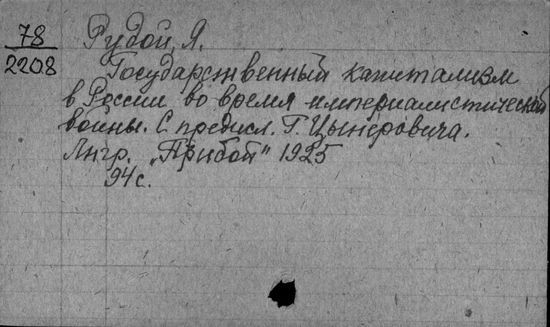 78
2208
Рудой, Я.
Государственный капитализм
в России во время империалистической
войны. С предисл. Г. Цыперовича.
Лнгр. „Прибой" 1925
94 с.